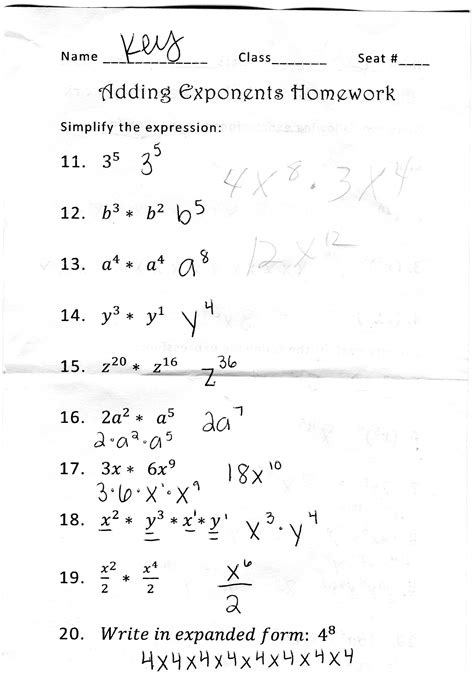 Name Key Class Seat #
Adding Exponents Homework
Simplify the expression:
11. 3⁵ 3⁵
4x⁸ · 3x⁴
12. b³ * b² b⁵
12x¹²
13. a⁴ * a⁴ a⁸
14. y³ * y¹ y⁴
15. z²⁰ * z¹⁶ z³⁶
16. 2a² * a⁵ 2a⁷
2·a²·a⁵
17. 3x * 6x⁹ 18x¹⁰
3·6·x¹·x⁹
18. x² * y³ * x¹ * y¹ x³·y⁴
19. x²/2 * x⁴/2 x⁶/2
20. Write in expanded form: 4⁸
4x4x4x4x4x4x4x4